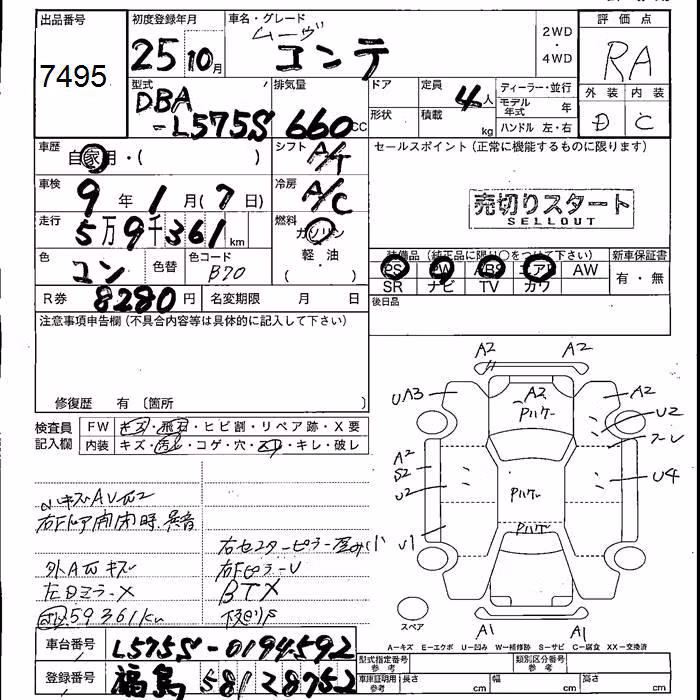 出品番号
7495
初度登録年月
25 10月
車名・グレード
ムーヴ
コンテ
2WD
・
4WD
評価点
RA
外装 内装
D C
型式
DBA
-L575S
排気量
660cc
ドア
形状
定員
4人
積載
kg
ディーラー・並行
モデル年式 年
ハンドル 左・右
車歴
自家用・( )
シフト
A/T
セールスポイント(正常に機能するものに限ります)
車検
9年1月(7日)
冷房
A/C
売切りスタート
SELLOUT
走行
5万9千361km
燃料
ガソリン
軽・油
( )
色
コン
色替
色コード
B70
装備品(純正品に限り○をつけて下さい)
PS PW ABS エアB AW
SR ナビ TV カワ
新車保証書
有・無
R券
8280円
名変期限 月 日
後日品
注意事項申告欄(不具合内容等は具体的に記入して下さい)
修復歴 有 〔箇所
検査員
記入欄
FW キズ・飛石・ヒビ割・リペア跡・X要
内装 キズ・汚レ・コゲ・穴・スレ・キレ・破レ
右Fドア開閉時異音
外A瓦キズ
左Dミラー X
59361km
右センターピラー歪み小
右FピラーU
BTX
下廻りS
A2
A2
UA3
A2
A2
U2
Pハゲー
A2
S2
U2
U4
Pハゲー
Pハゲー
U1
スペア
A1
A1
A−キズ E−エクボ U−凹み W−補修跡 S−サビ C−腐食 XX−交換済
車台番号
L575S-0194592
登録番号
福島 581 28752
型式指定番号
参考
類別区分番号
参考
車庫証明用
参考
長さ cm 幅 cm 高さ cm